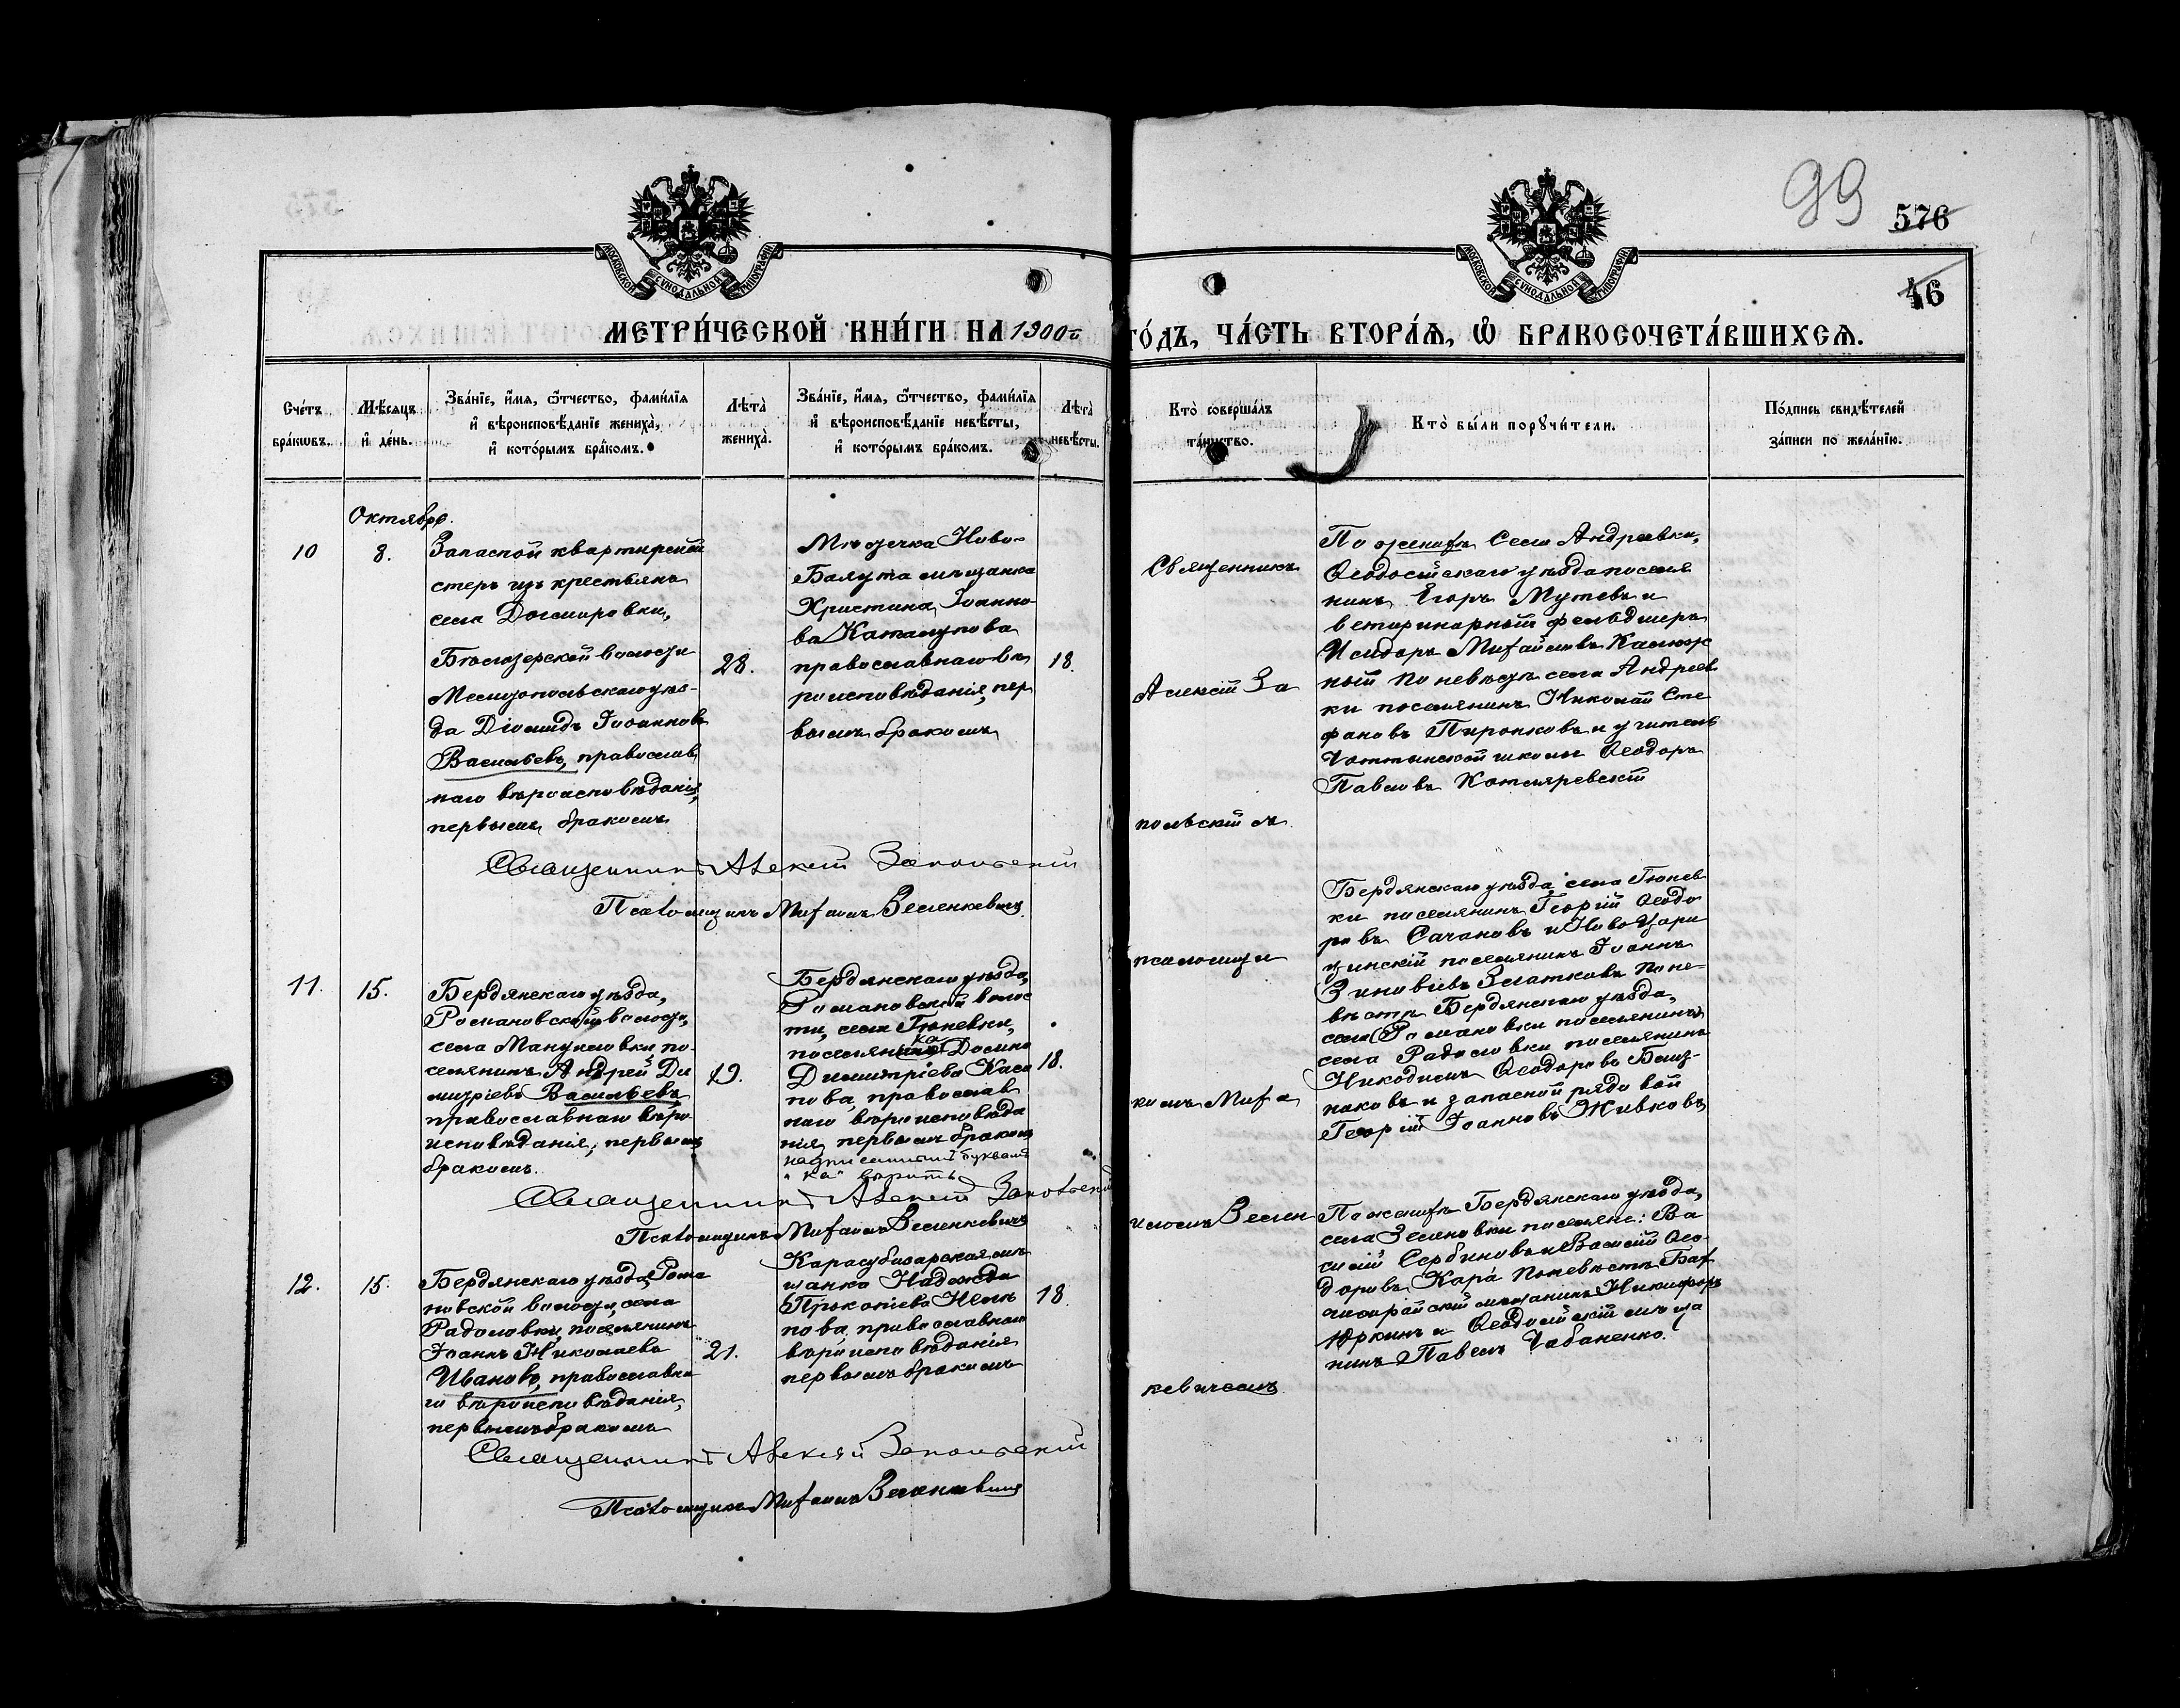 99
576
46
МОСКОВСКОЙ СУНОДАЛЬНОЙ ТИПОГРАФІИ
МОСКОВСКОЙ СУНОДАЛЬНОЙ ТИПОГРАФІИ
МЕТРИ́ЧЕСКОЙ КНИ́ГИ НА 1900й
ГО́ДЪ, ЧА́СТЬ ВТОРА́Ѧ, Ѽ БРАКОСОЧЕТА́ВШИХСѦ.
Сче́тъ бра́кѡвъ.
Мѣ́сяцъ и́ де́нь.
Зва́нїе, и́мѧ, ѻ́тчество, фами́лїѧ
и́ вѣроисповѣ́данїе жениха̀,
и́ кото́рымъ бра́комъ.
Лѣта̀ жениха̀.
Зва́нїе, и́мѧ, ѻ́тчество, фами́лїѧ
и́ вѣроисповѣ́данїе невѣ́сты,
и́ кото́рымъ бра́комъ.
Лѣта̀ невѣ́сты.
Кто̀ соверша́лъ та́инство.
Кто̀ бы́ли порꙋчи́тели.
По́дпись свидѣ́телей
за́писи по жела́нїю.
Октября.
10
8.
Запасной квартирмей
стеръ изъ крестьянъ
села
Бѣлозерской волости
Мелитопольскаго уѣз-
да Діомидъ Іоанновъ
Васильевъ, православ
наго вѣроисповѣданія,
первымъ бракомъ
28.
Мѣстечка Ново-
мѣщанка
Христина Іоанно-
ва
православнаго вѣ
роисповѣданія, пер
вымъ бракомъ
18.
Священникъ
Алексій За
польскій съ
псаломщи
комъ Миха
иломъ Весел
кевичемъ
По женихѣ Села Андреевки,
Ѳеодосійскаго уѣзда поселя
нинъ Егоръ Мутевъ и
ветеринарный фельдшеръ
Исидоръ Михайловъ Калюж
ный По невѣстѣ села Андреев
ки поселянинъ Николай Сте
фановъ Пиронковъ и учитель
школы Ѳеодоръ
Павловъ Котляревскій
Священникъ Алексій Запольскій
Псаломщикъ Михаилъ Веселкевичъ
11.
15.
Бердянскаго уѣзда,
Романовской волости,
села Мануиловки, по-
селянинъ Андрей Ди
митріевъ Васильевъ,
православнаго вѣро
исповѣданія, первымъ
бракомъ.
19.
Бердянскаго уѣзда,
Романовской волос
ти, села Гюневки,
поселянка Домна
Димитріева Каса
пова, православ
наго вѣроисповѣда
нія, первымъ бракомъ
надписаннымъ буквамъ
„ка“ вѣрить
18.
Бердянскаго уѣзда, села Гюнев
ки поселянинъ Георгій Ѳеодо
ровъ Сачановъ и НовоЦари
цинскій поселянинъ Іоаннъ
Зиновіевъ Златковъ По не-
вѣстѣ Бердянскаго уѣзда,
села Романовки поселянинъ
села Радоловки поселянинъ
Никодимъ Ѳеодоровъ Близ-
наковъ и запасной рядовой
Георгій Іоанновъ Живковъ
Священникъ Алексій Запольскій
Псаломщикъ Михаилъ Веселкевичъ
12.
15.
Бердянскаго уѣзда, Рома
новской волости, села
Радоловки, поселянинъ
Іоаннъ Николаевъ
Ивановъ, православна
го вѣроисповѣданія,
первымъ бракомъ
21.
Карасубазарская мѣ
щанка Надежда
Прокопіева
пова, православнаго
вѣроисповѣданія
первымъ бракомъ
18.
По женихѣ Бердянскаго уѣзда,
села Зеленовки поселяне: Ва
силій Сербиновъ и Василій Ѳео-
доровъ Кара́ По невѣстѣ Бах
чисарайскій мѣщанинъ Никифоръ
Юркинъ и Ѳеодосійскій мѣща
нинъ Павелъ Чабаненко.
Священникъ Алексій Запольскій
Псаломщикъ Михаилъ Веселкевичъ